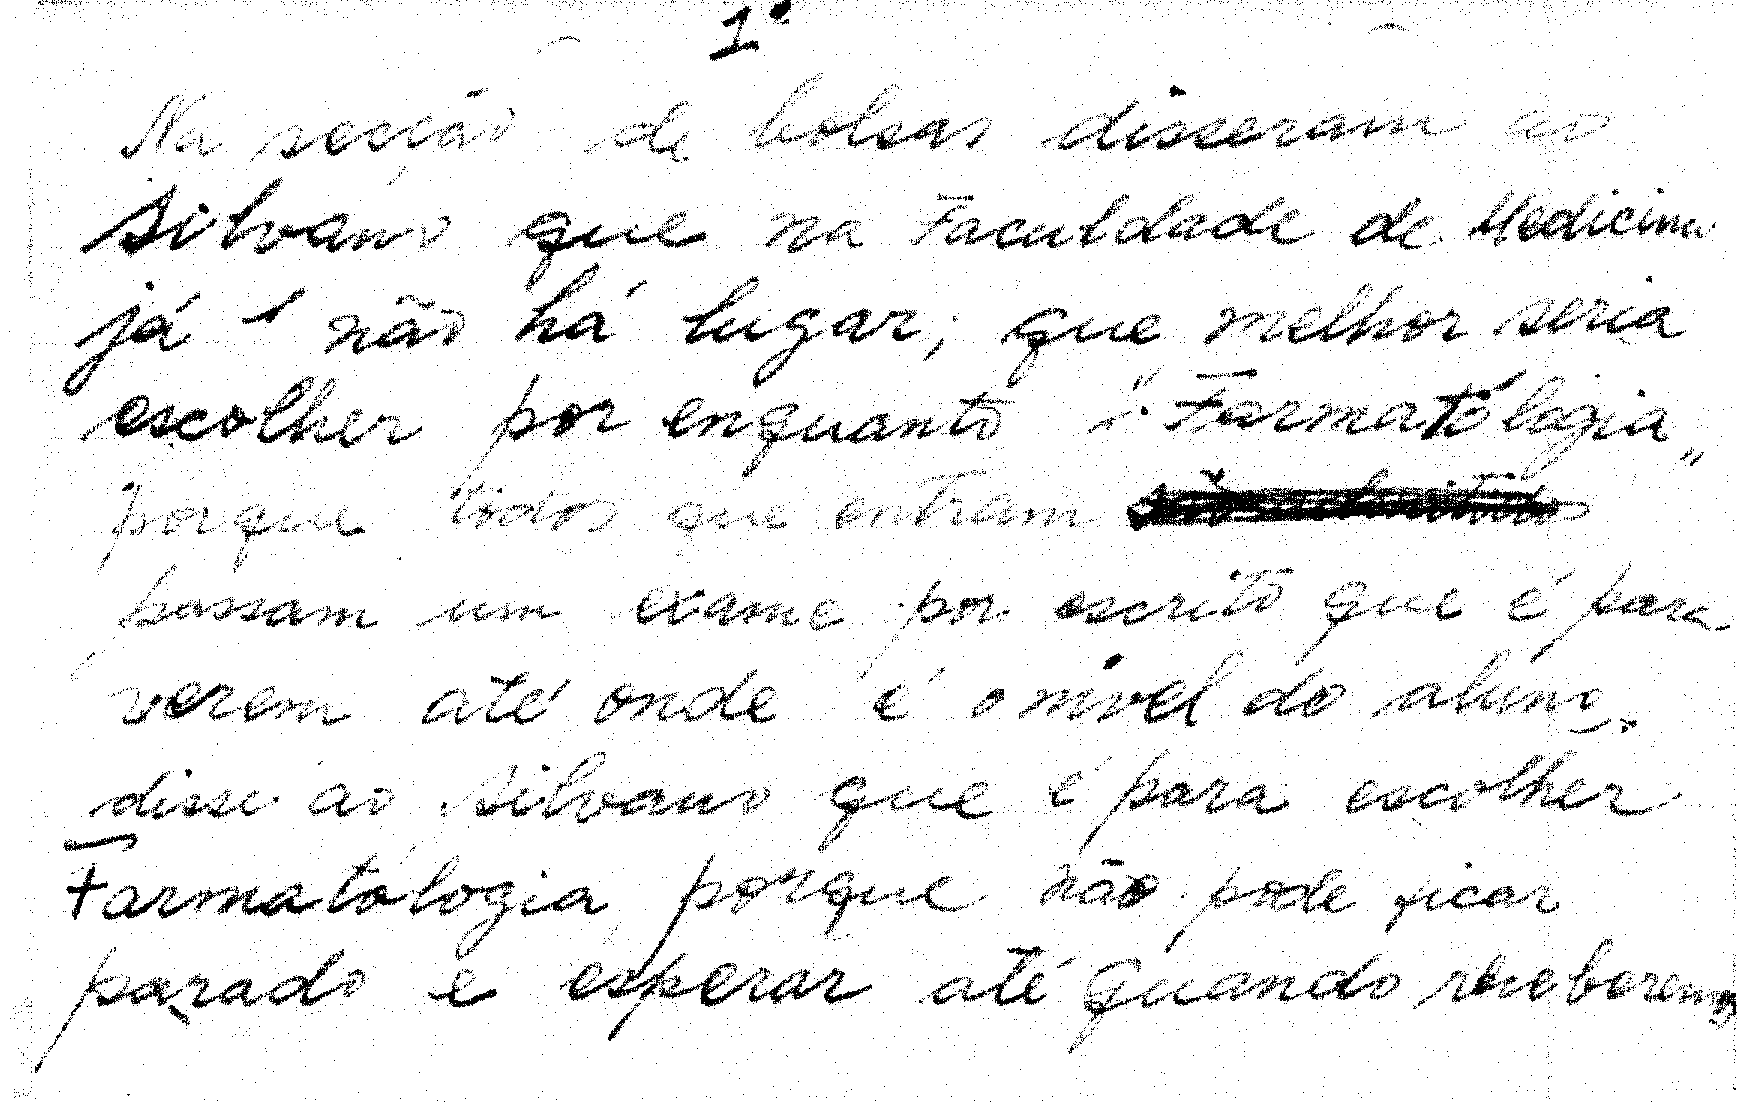 1º
Na secção de bolsas disseram ao
Silvano que na Faculdade de Medicina
já não há lugar; que melhor seria
escolher por enquanto i "Farmatólogia"
porque todos que entram
passam um exame por escrito que é para
verem até onde é o nivel do aluno.
disse ao Silvano que é para escolher
Farmatólogia porque não pode ficar
parado e esperar até quando receberem